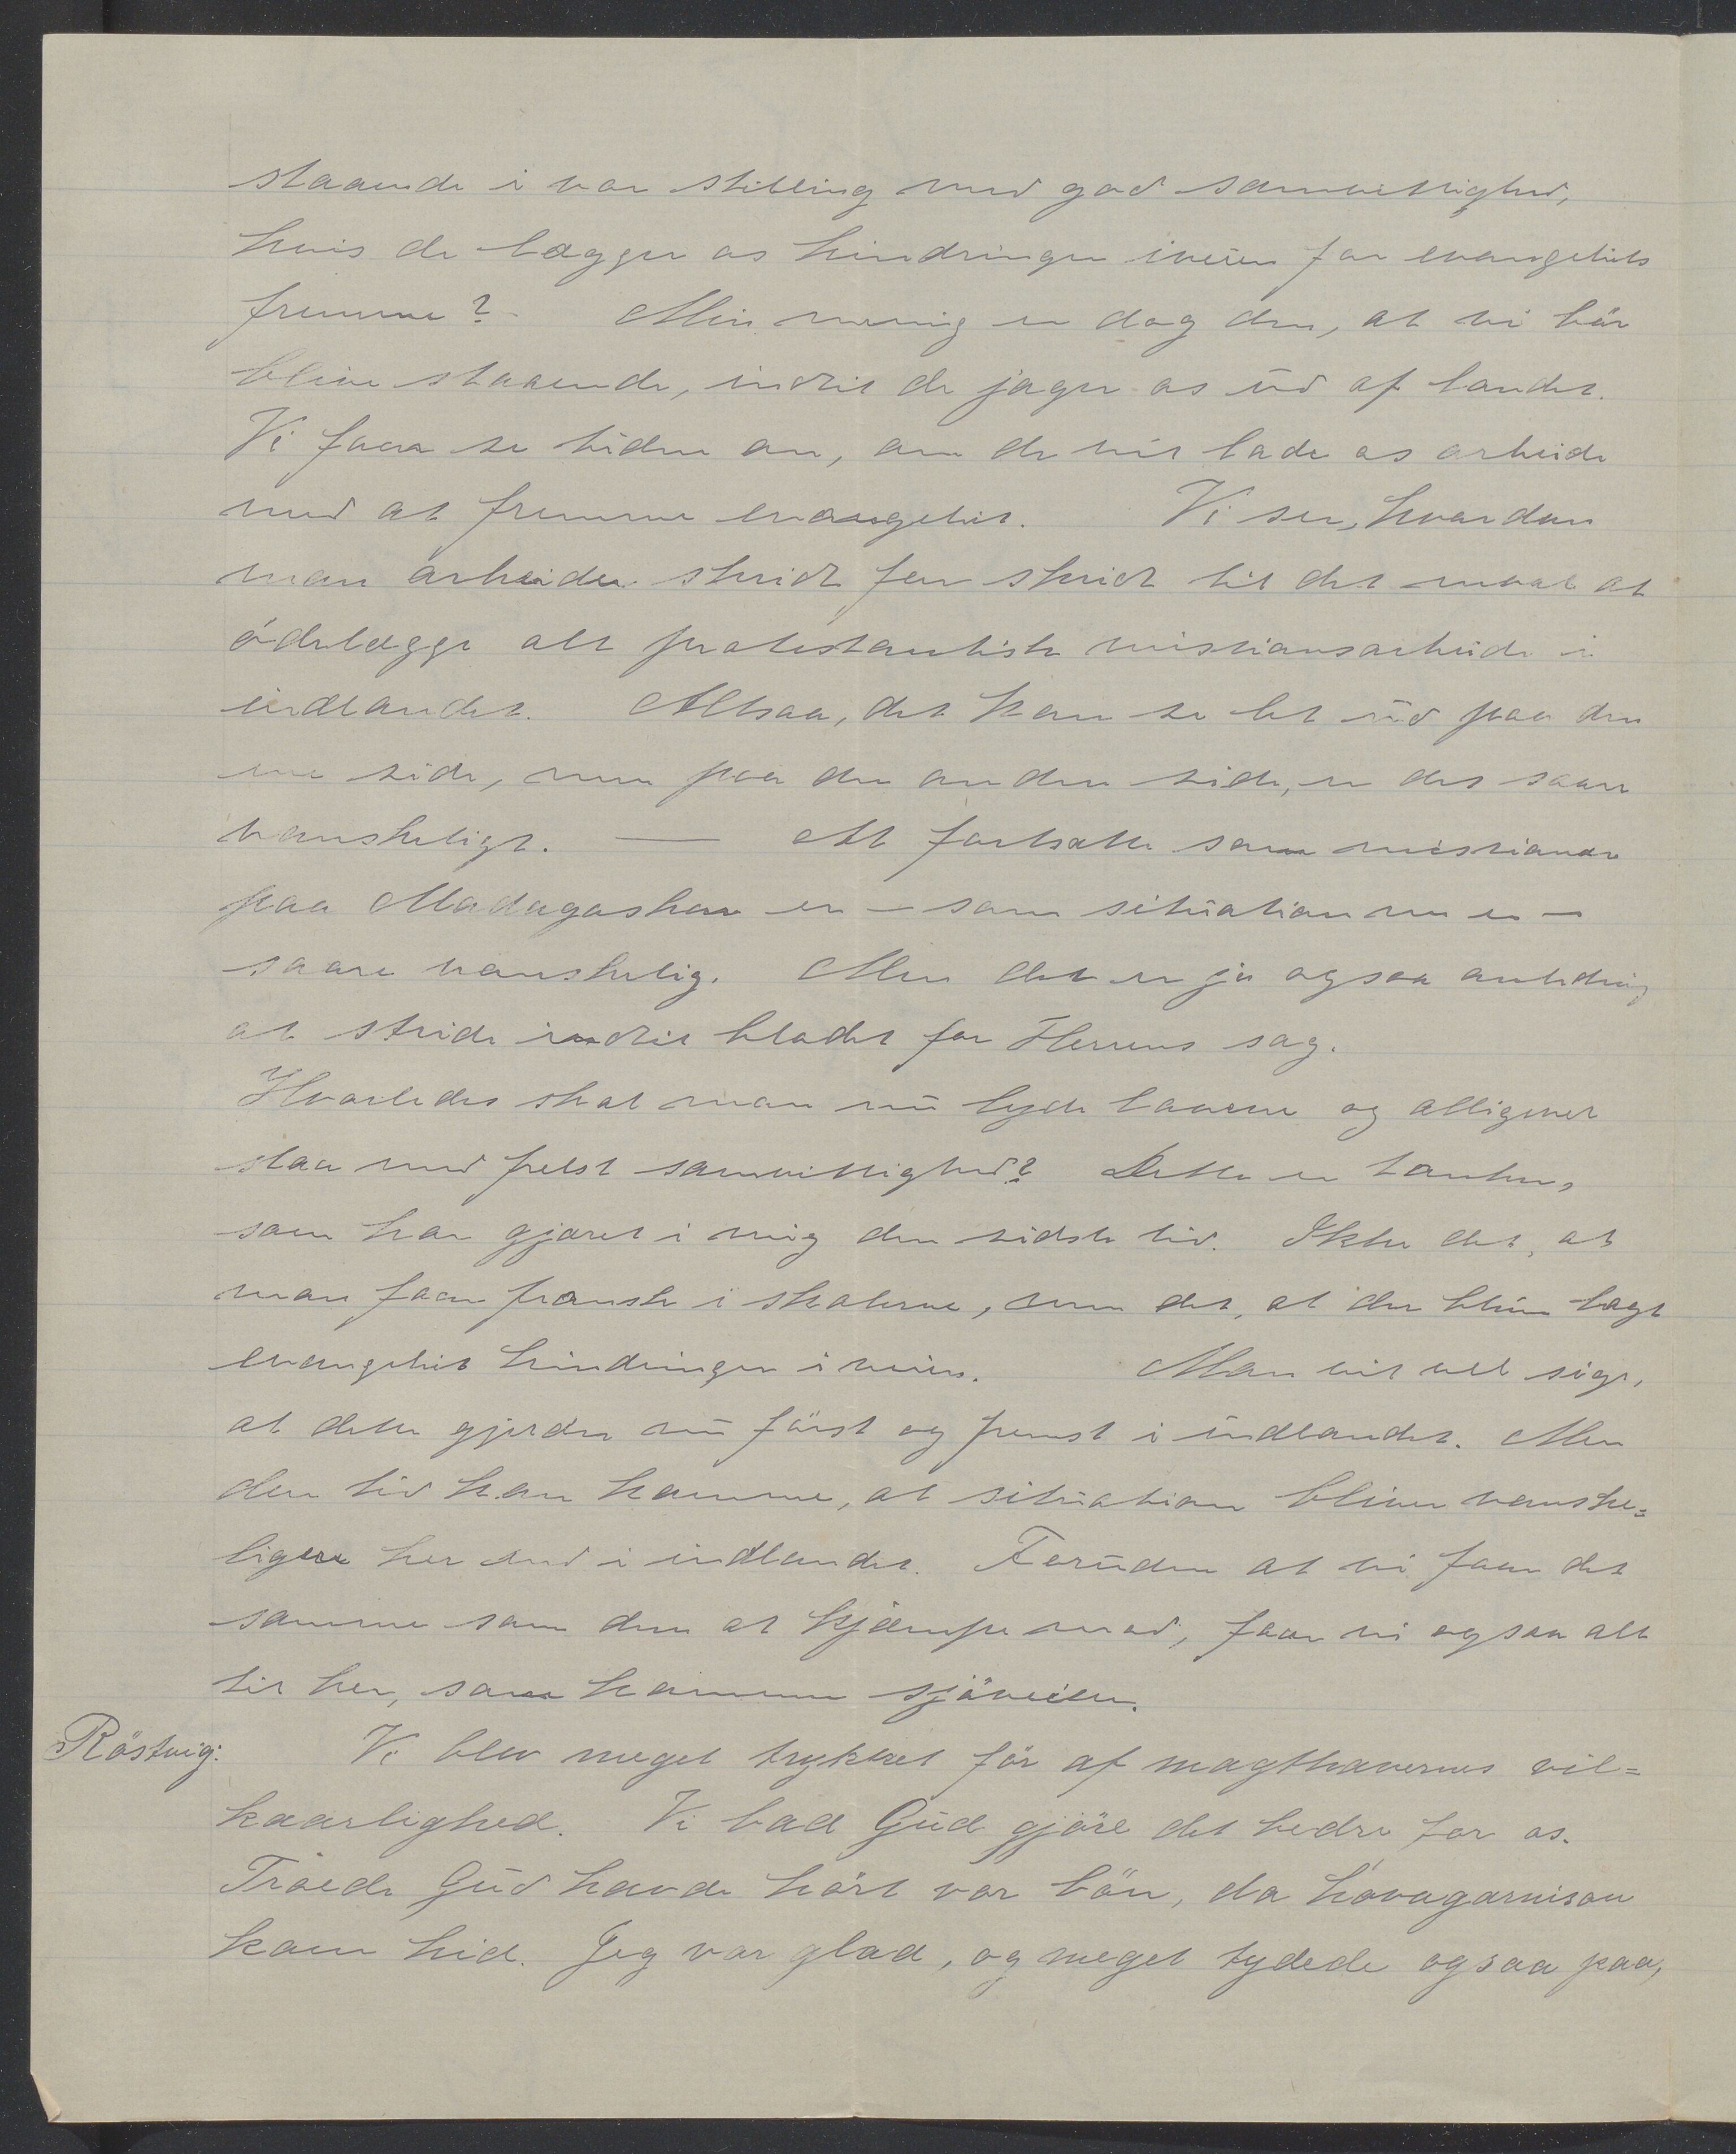 staaende i vor stilling med god samvittighed,
hvis de lægger os hindringer iveien for evangeliets
fremme? Min mening er dog den, at vi bör
blive staaende, indtil de jager os ud af landet.
Vi faar se tiden an, om de vil lade os arbeide
med at fremme evangeliet. Vi ser, hvordan
man arbeider skridt for skridt til det maal at
ödelægge alt protestantisk missionsarbeide i
indlandet. Altsaa, det kan se let ud paa den
ene side, men paa den anden side, er det saare
vanskeligt. — At fortsætte som missionær
paa Madagaskar er – som situation nu er –
saare vanskelig. Men det er jo ogsaa anledning
at stride indtil blodet for Herrens sag.
Hvorledes skal man nu lyde lovene og alligevel
staa med frelst samvittighed? Dette er tanken,
som har gjæret i mig den sidste tid. Ikke det, at
man faar fransk i skolerne, men det, at der bliver lagt
evangeliet hindringer i veien. Man vil vel sige,
at dette gjælder nu först og fremst i indlandet. Men
den tid kan komme, at situation bliver vanske=
ligere her end i indlandet. Foruden at vi faar det
samme som dem at kjæmpe mod, faar vi ogsaa alt
til her, som kommer sjöveien.
Röstvig: Vi blev meget trykket för af magthavernes vil=
kaarlighed. Vi bad Gud gjöre det bedre for os.
Troede Gud havde hört vor bön, da hovagarnison
kom hid. Jeg var glad, og meget tydede ogsaa paa,